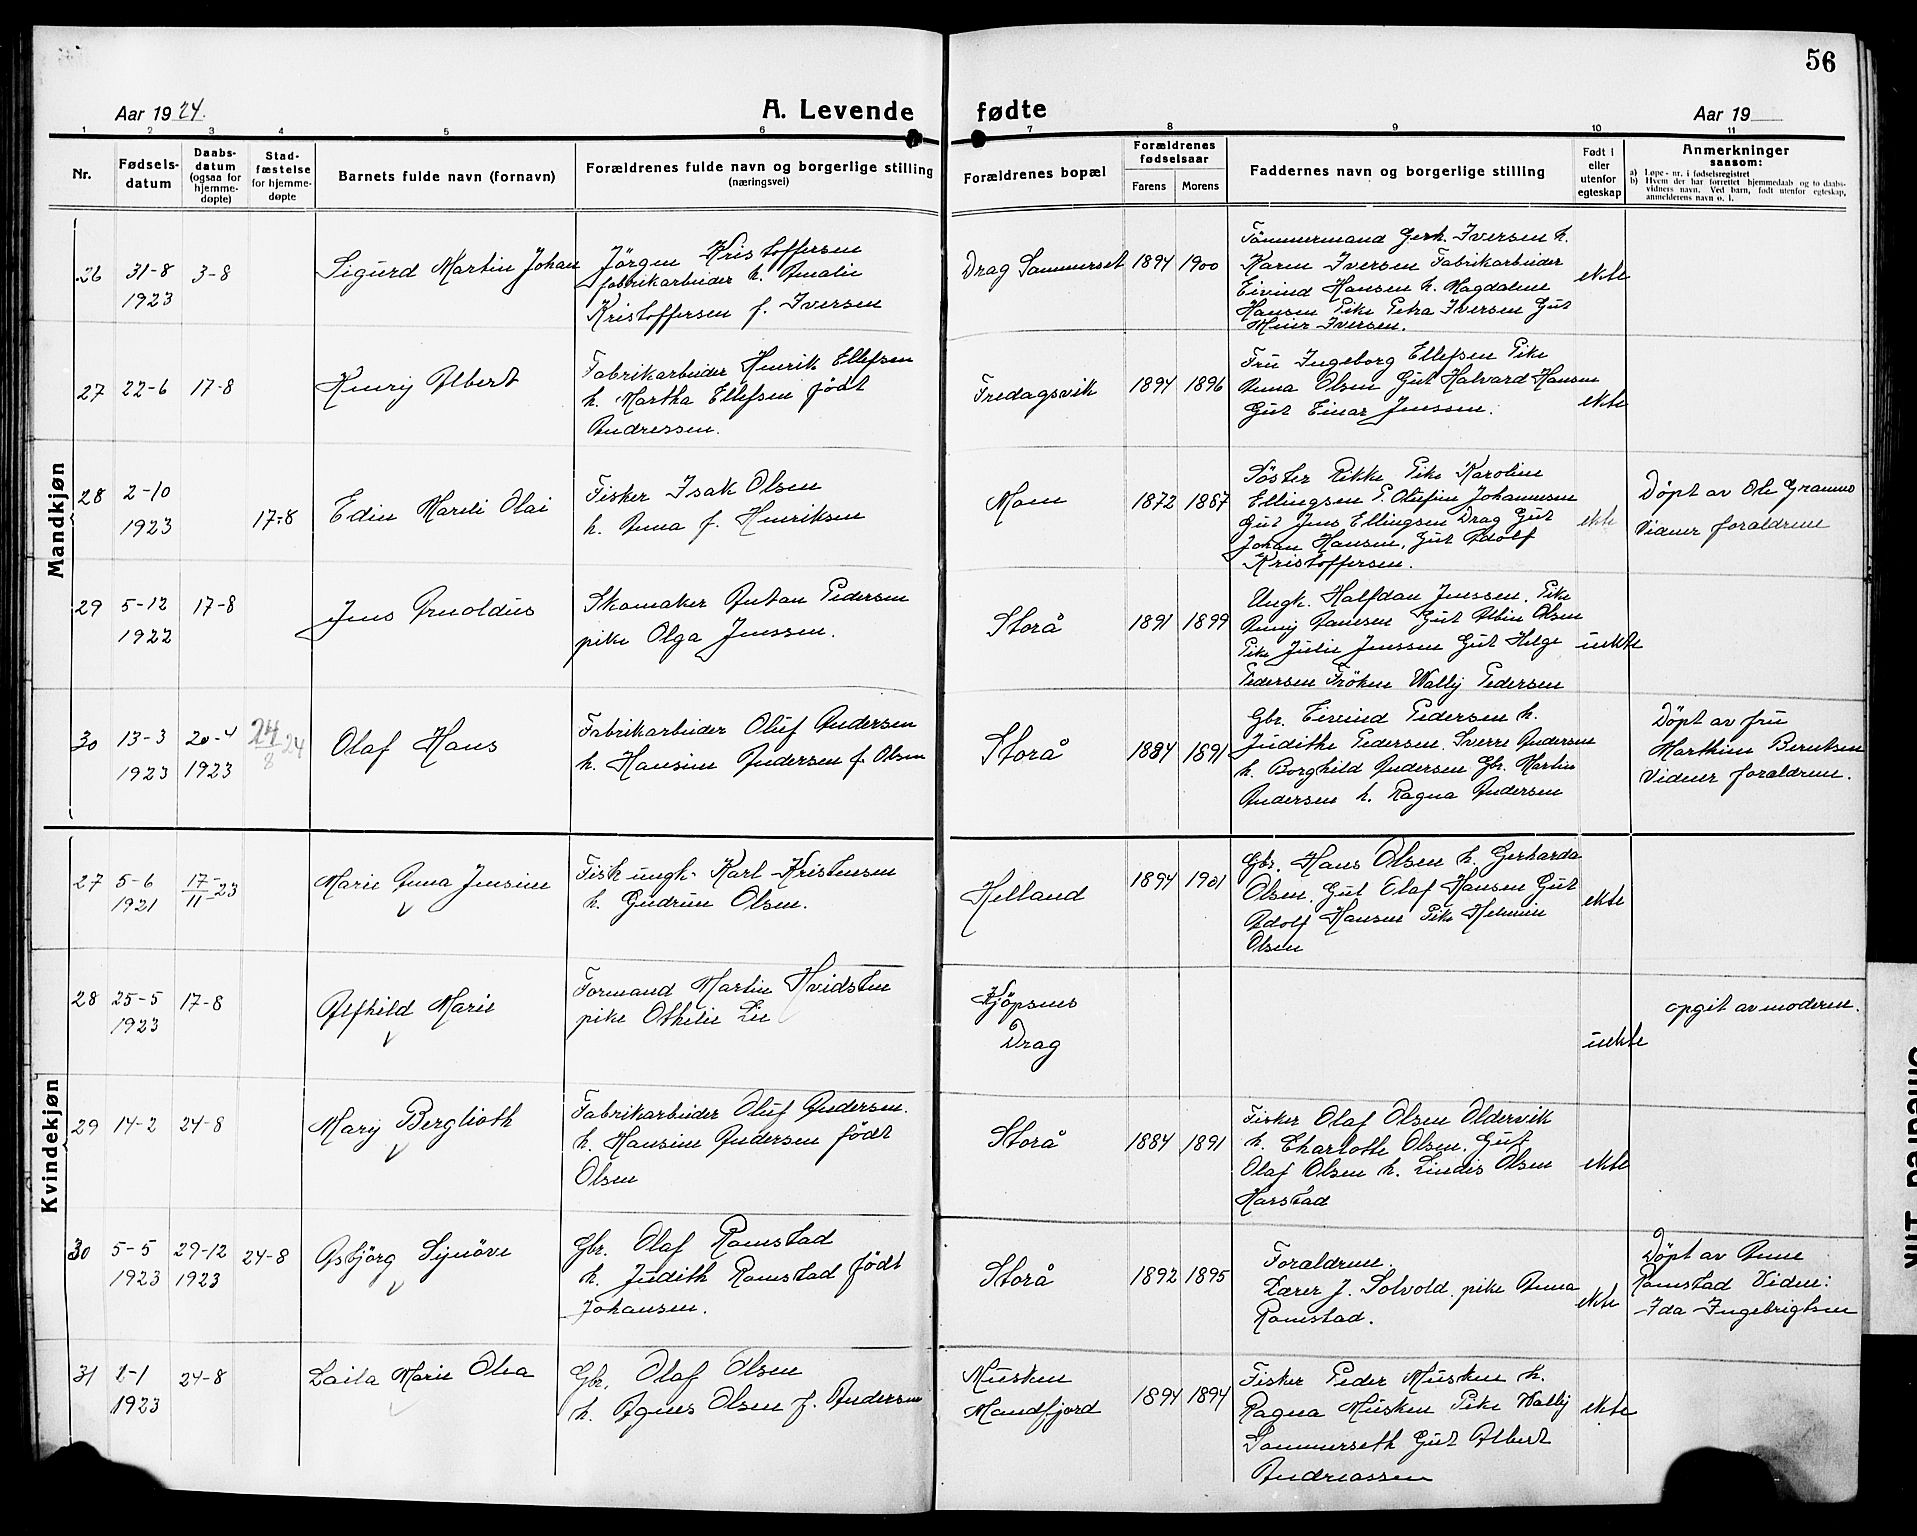 56
Aar 1924.
A. Levende fødte
Aar 19
1 2 3 4 5 6 7 8 9 10 11
Nr.
Fødsels-
datum
Daabs-
datum
(ogsaa for
hjemme-
døpte)
Stad-
fæstelse
for hjemme-
døpte
Barnets fulde navn (fornavn)
Forældrenes fulde navn og borgerlige stilling
(næringsvei)
Forældrenes bopæl
Forældrenes
fødselsaar
Farens
Morens
Faddernes navn og borgerlige stilling
Født i
eller
utenfor
egteskap
Anmerkninger
saasom:
a) Løpe-nr. i fødselsregistret
b) Hvem der har forrettet hjemmedaab og to daabs-
vidners navn. Ved barn, født utenfor egteskap,
anmelderens navn o. l.
Mandkjøn
26
31-8
1923
3-8
Sigurd Martin Johan
Jörgen Kristoffersen
fabrikarbeider h. Amalie
Kristoffersen f. Iversen
Drag Sammerset
1894
1900
Tömmermand Gerh. Iversen h.
Karen Iversen Fabrikarbeider
Eivind Hansen h. Magdalene
Hansen Pike Petra Iversen Gut
Meier Iversen.
ekte
27
22-6
17-8
Henry Albert
Fabrikarbeider Henrik Ellefsen
h. Martha Ellefsen födt
Andressen.
Fredagsvik
1894
1896
Fru Ingeborg Ellefsen Pike
Anna Olsen Gut Halvard Hansen
Gut Einar Jenssen.
ekte
28
2-10
1923
17-8
Edin Mareli Olai
Fisker Isak Olsen
h. Anna f. Henriksen
Moen
1872
1887
Söster Rikke Pike Karoline
Ellingsen P. Olufine Johannesen
Gut Jens Ellingsen Drag Gut
Johan Hansen, Gut Adolf
Kristoffersen.
ekte
Döpt av Ole Grannes
Vidner foraldrene
29
5-12
1922
17-8
Jens Arnoldus
Skomaker Antan Pedersen
pike Olga Jenssen.
Storå
1891
1899
Ungk. Halfdan Jenssen. Pike
Anny Danesen Gut Albin Olsen
Pike Julie Jenssen Gut Helge
Pedersen Fröken Wally Pedersen
uekte
30
13-3
1923
20-4
1923
24/8 24
Olaf Hans
Fabrikarbeider Oluf Andersen
h. Hansine Andersen f. Olsen
Storå
1884
1891
Gbr. Eivind Pedersen h.
Judithe Pedersen. Sverre Andersen
h. Borghild Andersen Gbr. Martin
Andersen h. Ragna Andersen
Döpt av fru
Marthine Berntsen
Vidner foraldrene.
Kvindekjøn
27
5-6
1921
17/11-23
Marie Anna Jensine
Fisk. ungk. Karl Kristensen
h. Gudrun Olsen.
Helland
1894
1901
Gbr. Hans Olsen h. Gerharda
Olsen. Gut Olaf Hansen Gut
Adolf Hansen Pike Helmine
Olsen
ekte
28
25-5
1923
17-8
Alfhild Marie
Formand Martin Hvidsten
pike Othelie Lie
Kjöpsnes
Drag
uekte
opgit av moderen.
29
14-2
24-8
Mary Berglioth
Fabrikarbeider Oluf Andersen.
h. Hansine Andersen födt
Olsen
Storå
1884
1891
Fisker Olaf Olsen Oldervik
h. Charlotte Olsen. Gut
Olaf Olsen h. Lindis Olsen
Harstad
ekte
30
5-5
1923
29-12
1923
24-8
Asbjörg Synöve
Gbr. Olaf Ramstad
h. Judith Ramstad födt
Johansen.
Storå
1892
1895
Foraldrene.
Lærer J. Solvold. pike Anna
Ramstad.
ekte
Döpt av Anne
Ramstad Vidne:
Ida Ingebrigtsen
31
2-1
1923
24-8
Laila Marie Olea
Gbr. Olaf Olsen
h. Agnes Olsen f. Andersen
Musken
Mandfjord
1894
1894
Fisker Peder Musken h.
Ragna Musken Pike Wally
Sammerseth Gut Albert
Andreassen
ekte